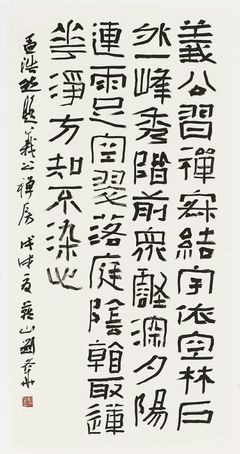 義公習禪寂結宇依空林戶
外一峰秀階前衆壑深夕陽
連雨足空翠落庭陰看取蓮
花淨方知不染心
孟浩然題義公禪房 戊申夏 山劉